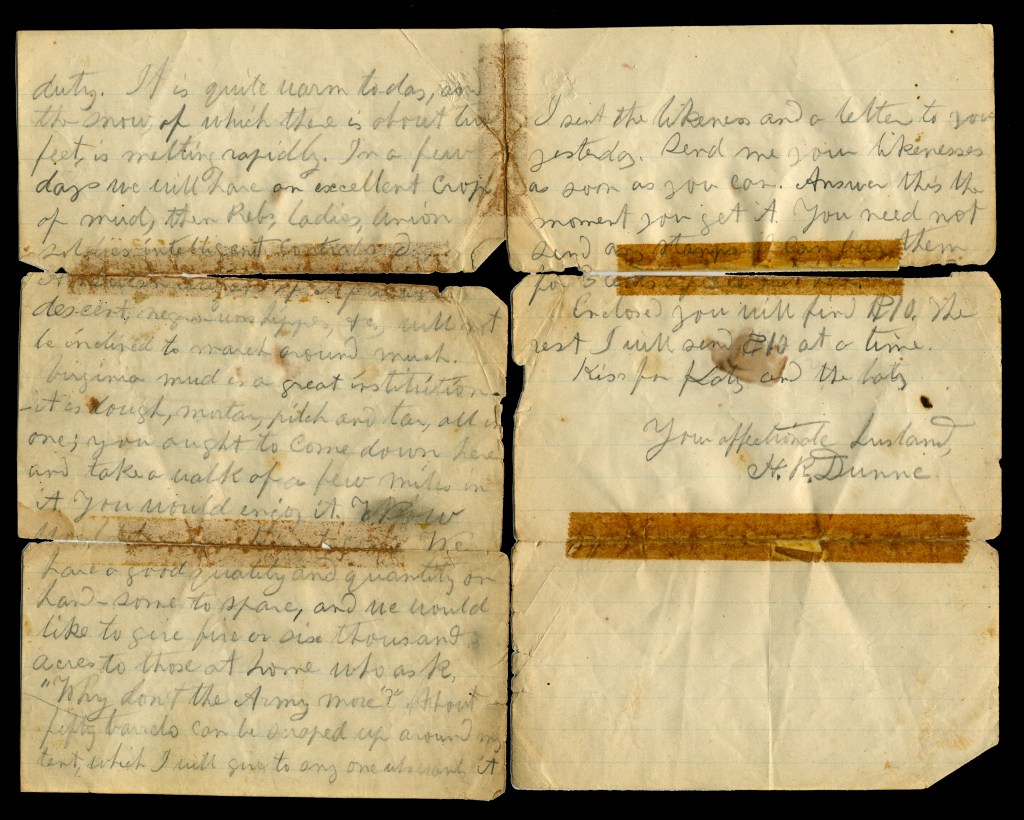 duty. It is quite warm to-day, and
the snow, of which there is about two
feet, is melting rapidly. In a few
days we will have an excellent crop
of mud, then Rebs, ladies, Union
soldiers intelligent contrabands
American citizens of African
descent, negro worshippers, &c., will not
be inclined to march around much.
Virginia mud is a great institution
- it is dough, mortar, pitch and tar, all in
one; you ought to come down here
and take a walk of a few miles in
it. You would enjoy it.
We
have a good quality and quantity on
hand - some to spare, and we would
like to give five or six thousand
acres to those at home who ask,
"Why don't the Army move?" About
fifty barrels can be scraped up around my
tent, which I will give to any one who wants it
I sent the likeness and a letter to you
yesterday. Send me your likenesses
as soon as you can. Answer this the
moment you get it. You need not
send any stamps I can buy them
for 3 cents
Enclosed you will find $10. The
rest I will send $10 at a time.
Kiss for Katy and the baby
Your affectionate husband,
H. R. Dunne.